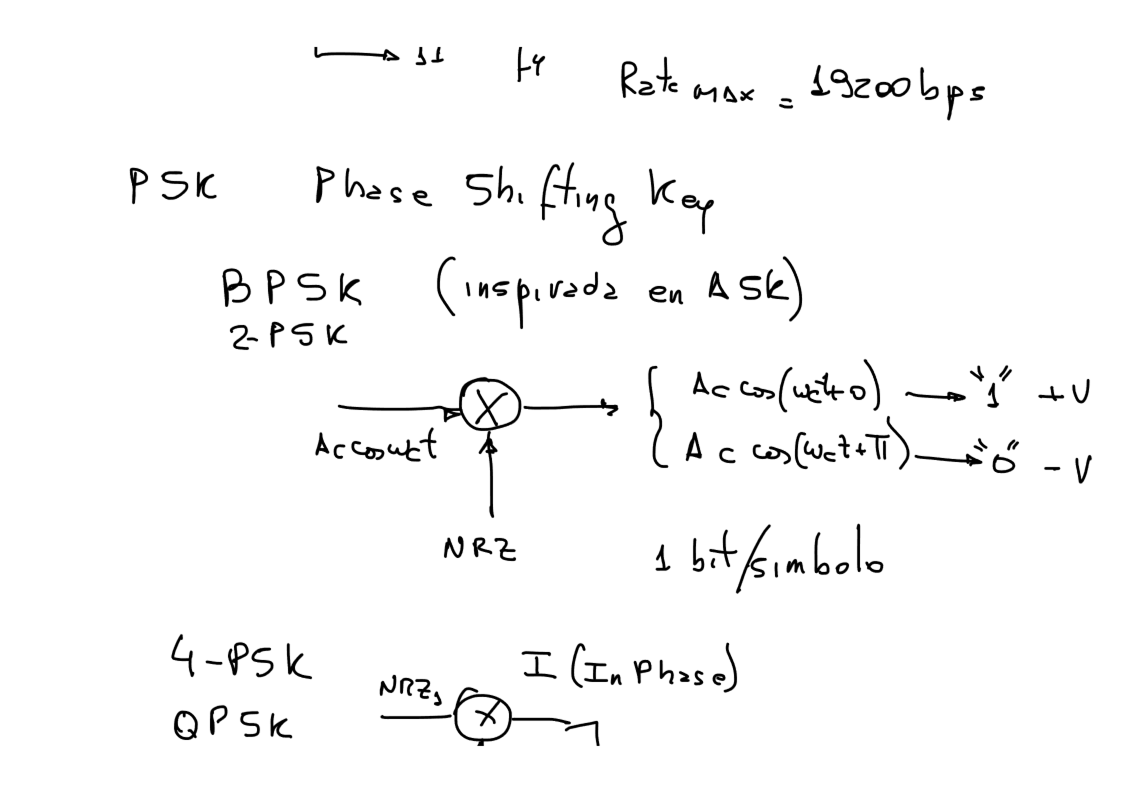 11 f4 Rate max = 19200 bps
PSK Phase Shifting Key
BPSK (inspirada en ASK)
2-PSK
Ac cos(wct+0) "1" +V
X
Ac cos wct
Ac cos(wct+π) "0" -V
NRZ
1 bit/simbolo
4-PSK I (In Phase)
NRZ1
QPSK X